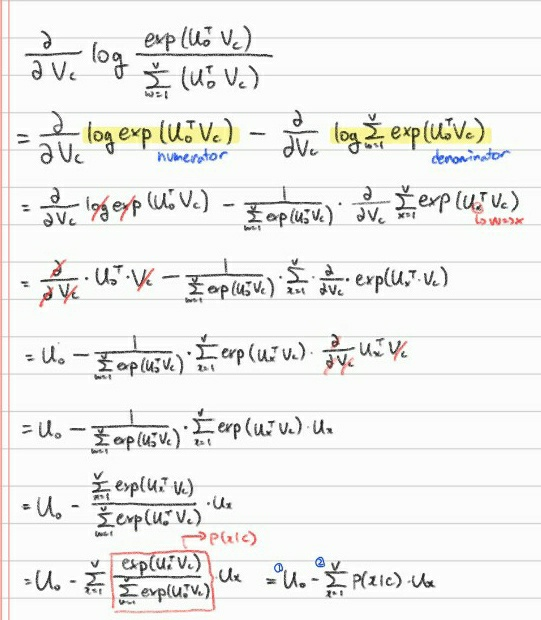 ∂/∂V_c log exp(U_o^T V_c) / Σ_{w=1}^{V} (U_o^T V_c)
= ∂/∂V_c log exp(U_o^T V_c) − ∂/∂V_c log Σ_{w=1}^{V} exp(U_o^T V_c)
numerator denominator
= ∂/∂V_c log exp(U_o^T V_c) − 1 / Σ_{w=1}^{V} exp(U_o^T V_c) · ∂/∂V_c Σ_{x=1}^{V} exp(U_x^T V_c)
↳ w=>x
= ∂/∂V_c · U_o^T · V_c − 1 / Σ_{w=1}^{V} exp(U_o^T V_c) · Σ_{x=1}^{V} · ∂/∂V_c · exp(U_x^T · V_c)
= U_o − 1 / Σ_{w=1}^{V} exp(U_o^T V_c) · Σ_{x=1}^{V} exp(U_x^T V_c) · ∂/∂V_c U_x^T V_c
= U_o − 1 / Σ_{w=1}^{V} exp(U_o^T V_c) · Σ_{x=1}^{V} exp(U_x^T V_c) · U_x
= U_o − Σ_{x=1}^{V} exp(U_x^T V_c) / Σ_{w=1}^{V} exp(U_o^T V_c) · U_x
→ P(x|c)
= U_o − Σ_{x=1}^{V} exp(U_x^T V_c) / Σ_{w=1}^{V} exp(U_o^T V_c) · U_x = ① U_o − ② Σ_{x=1}^{V} P(x|c) · U_x